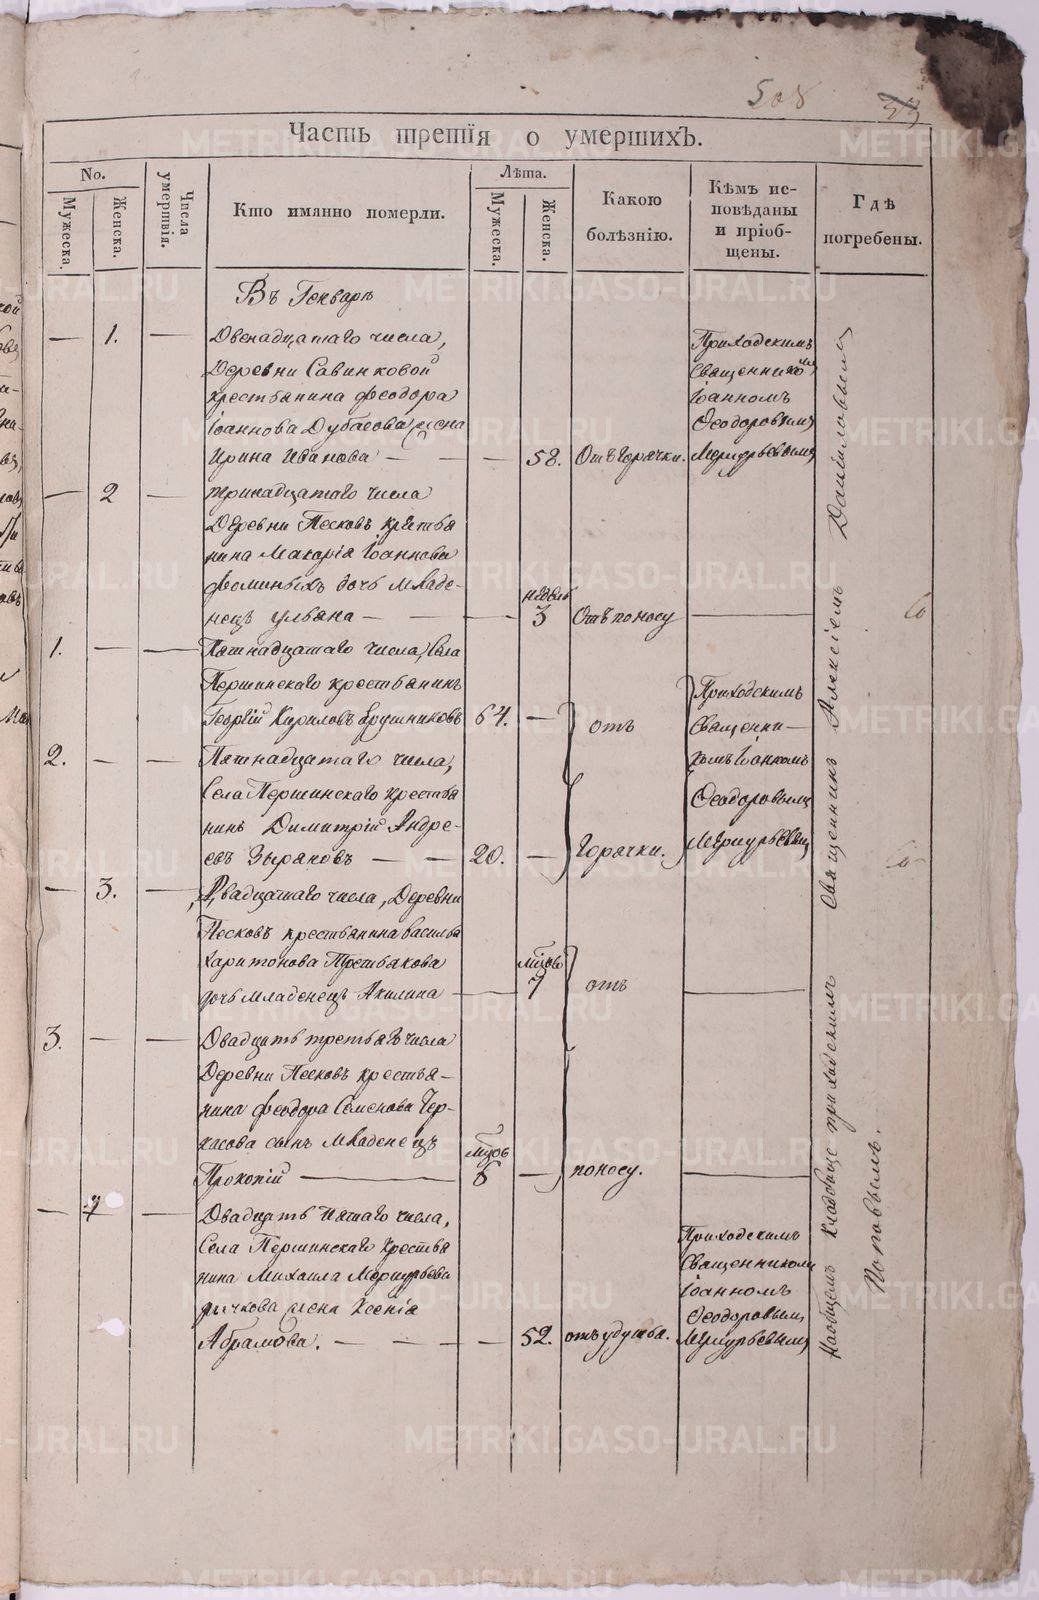 508
33
Часть третія о умершихъ.
No.
Мужеска.
Женска.
Числа умершія.
Кто имянно померли.
Лѣта.
Мужеска.
Женска.
Какою болѣзнію.
Кѣмъ исповѣданы и пріобщены.
Гдѣ погребены.
Въ Генварѣ
— 1. — Двенадцатаго числа, Приходскимъ
Деревни Савинковой Священникомъ
крестьянина Феодора Іоанномъ
Іоаннова Дубасова жена Ѳеодоровымъ
Ирина Иванова — — — 58. Отъ горячки. Меркурьевымъ
— 2 — тринадцатаго числа
Деревни Песковъ крестья
нина Макарія Іоаннова
Фоминыхъ дочь младе- недѣль
нецъ ульяна — — — 3 Отъ поносу —
1. — — Пятнадцатаго числа, Села
Першинскаго крестьянинъ Приходскимъ
Георгій Кириловъ Ярушниковъ 64. — отъ Священни-
2. — — Пятнадцатаго числа, комъ Іоанномъ
Села Першинскаго крестья Ѳеодоровымъ
нинъ Димитрій Андре-
евъ Зыряновъ — — 20. — Горячки. Меркурьевымъ
— 3. — Двадцатаго числа, Деревни
Песковъ крестьянина василья
Харитонова Третьякова мцовъ
дочь младенецъ Акилина — 7 отъ —
3. — — Двадцать третьяго числа
Деревни Песковъ крестья-
нина Феодора Семенова Чер-
касова сынъ младенецъ мцовъ
Прокопій — 6 — поносу. —
— 4 — Двадцать пятаго числа,
Села Першинскаго крестья Приходскимъ
нина Михаила Меркурьева Священникомъ
рычкова жена Ксенія Іоанномъ
Абрамова. — — — 52. отъ удушья. Ѳеодоровымъ
Меркурьевымъ
На общемъ кладбище приходскимъ Священникъ Алексіемъ Даниловымъ
Поповымъ.
METRIKI.GASO-URAL.RU